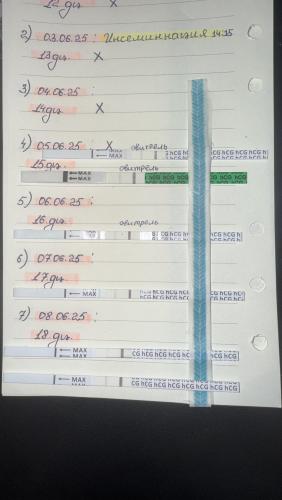 12 дц X
2) 03.06.25: Инсеминация 14:15
13 дц. X
3) 04.06.25:
14 дц. X
4) 05.06.25: X овитрель
← MAX hCG hCG hCG hCG hCG hCG
15 дц. овитрель
← MAX hCG hCG hCG hCG hCG
5) 06.06.25:
16 дц. овитрель
hCG hCG hCG hCG hCG
6) 07.06.25:
17 дц.
← MAX hCG hCG hCG hCG hCG
7) 08.06.25:
18 дц.
← MAX CG hCG hCG hCG hCG hCG
← MAX CG hCG hCG hCG hCG hCG